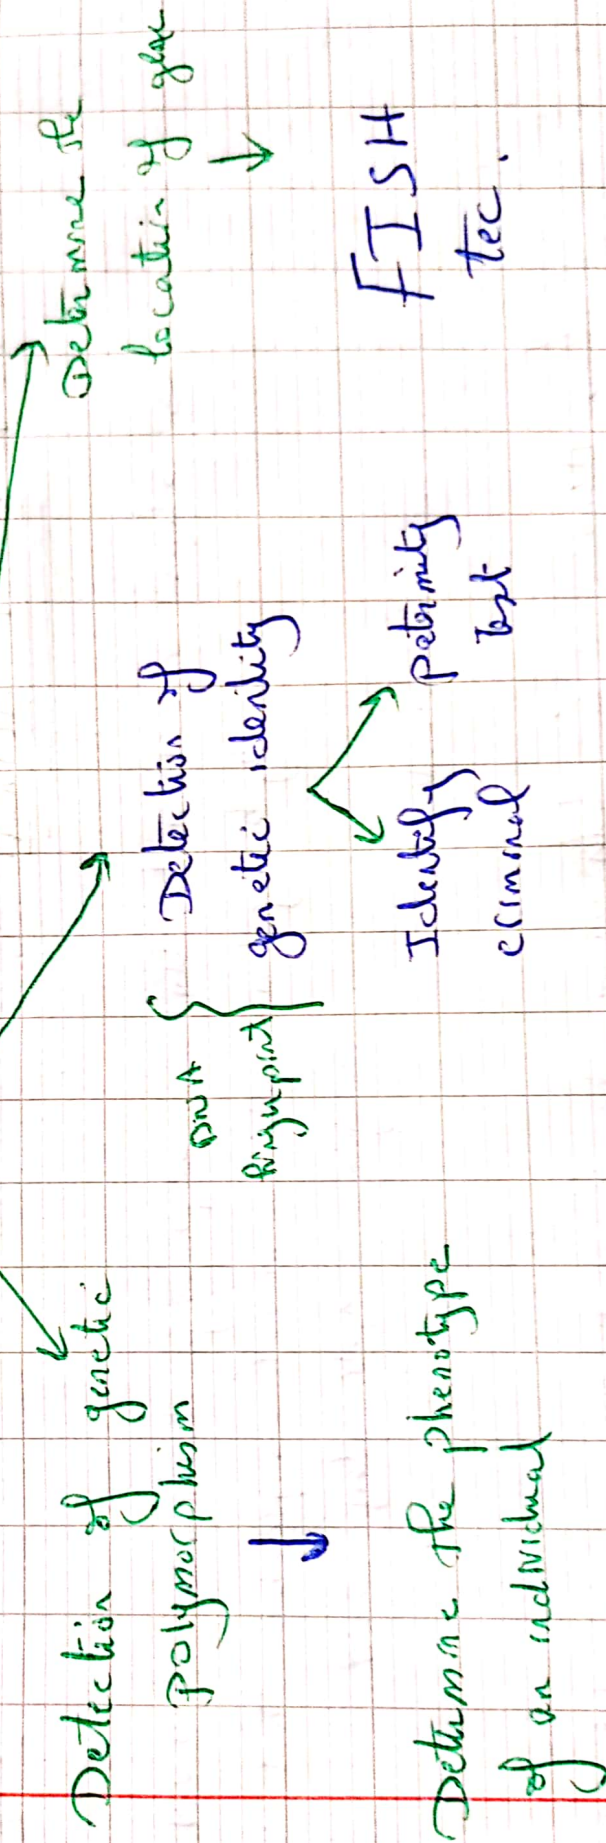 Detection of genetic
polymorphism
↓
Determine the phenotype
of an individual
DNA
fingerprint
Detection of
genetic identity
Identify
criminal
paternity
test
Determine the
location of gene
↓
FISH
tec.